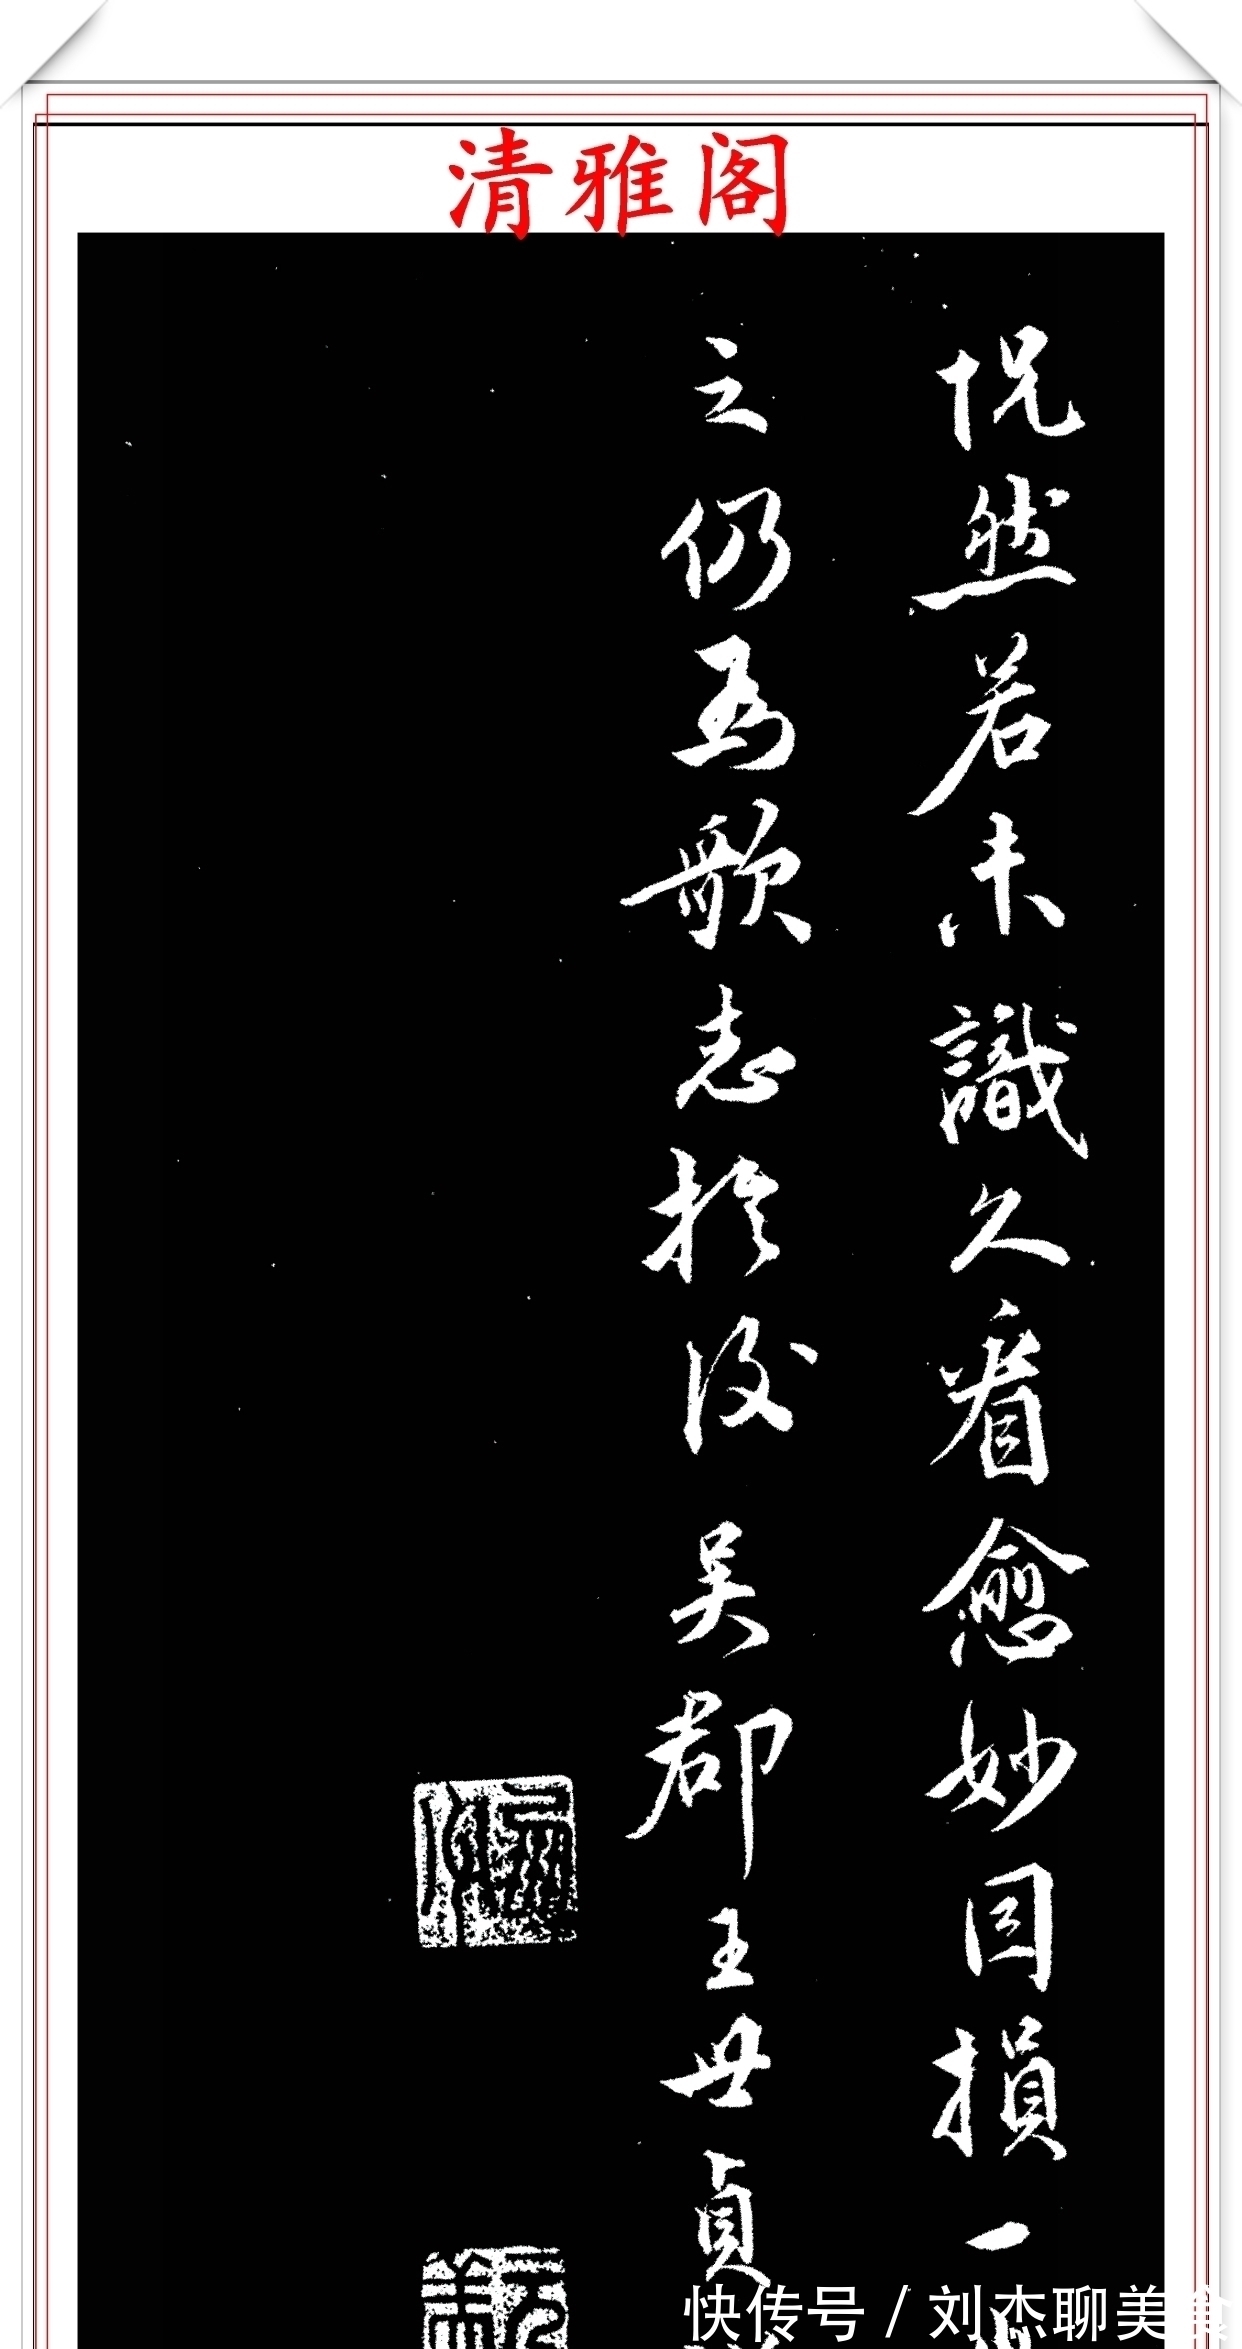 清雅阁
怳然若未識久看愈妙因損一
之仍為歌志於後吳郡王世貞
快传号 / 刘杰聊美食